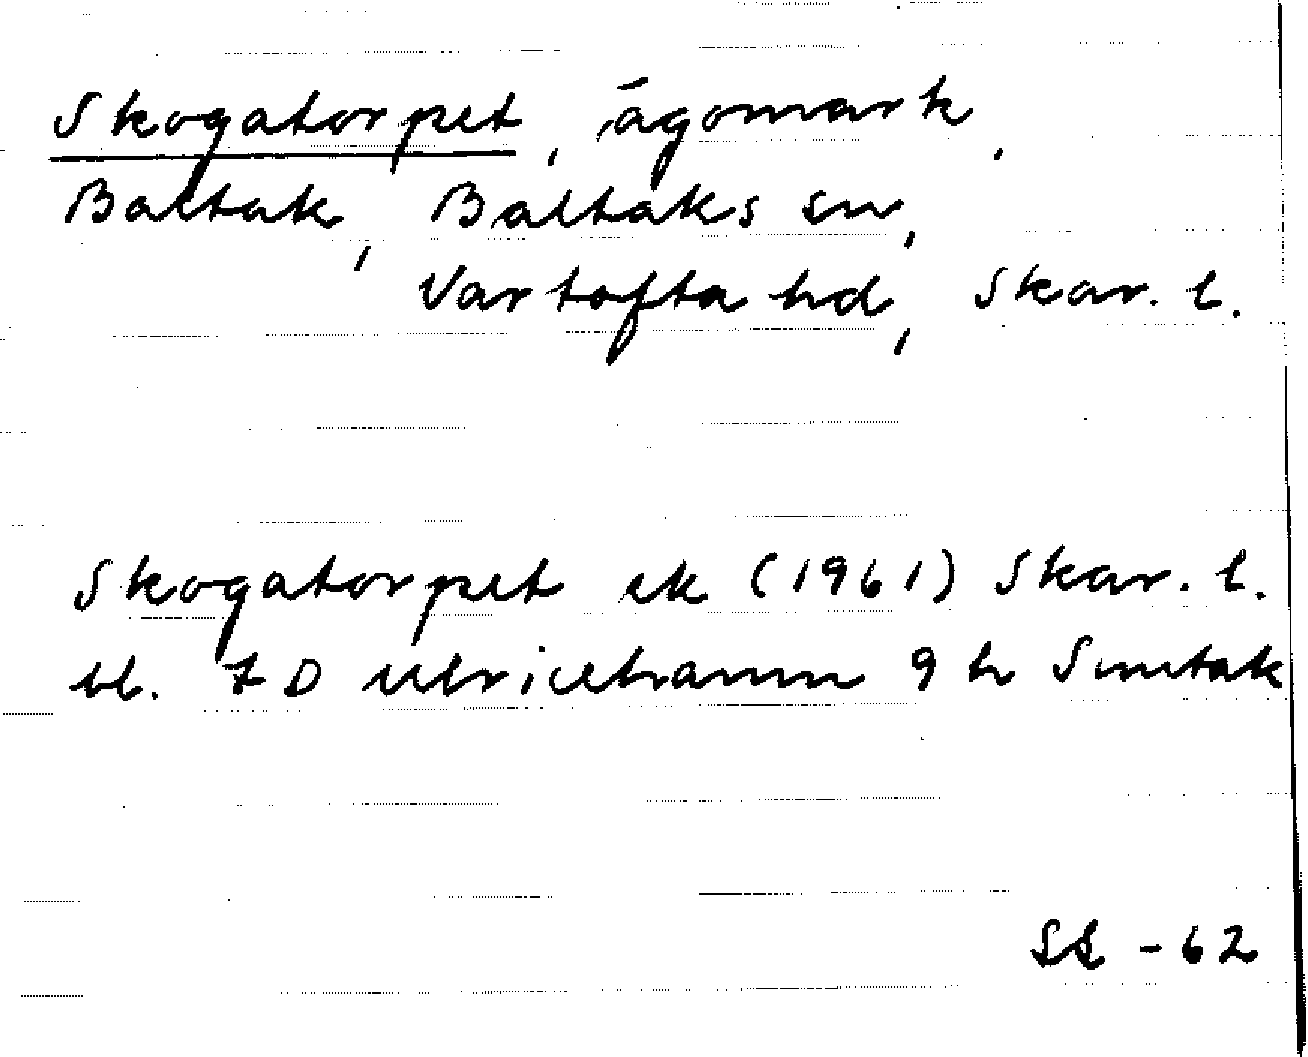 Skogatorpet, ägomark,
Baltak, Baltaks sn,
Vartofta hd, Skar. l.
Skogatorpet ek (1961) Skar. l.
bl. 7 D Ulricehamn 9 h Suntak
SL -62